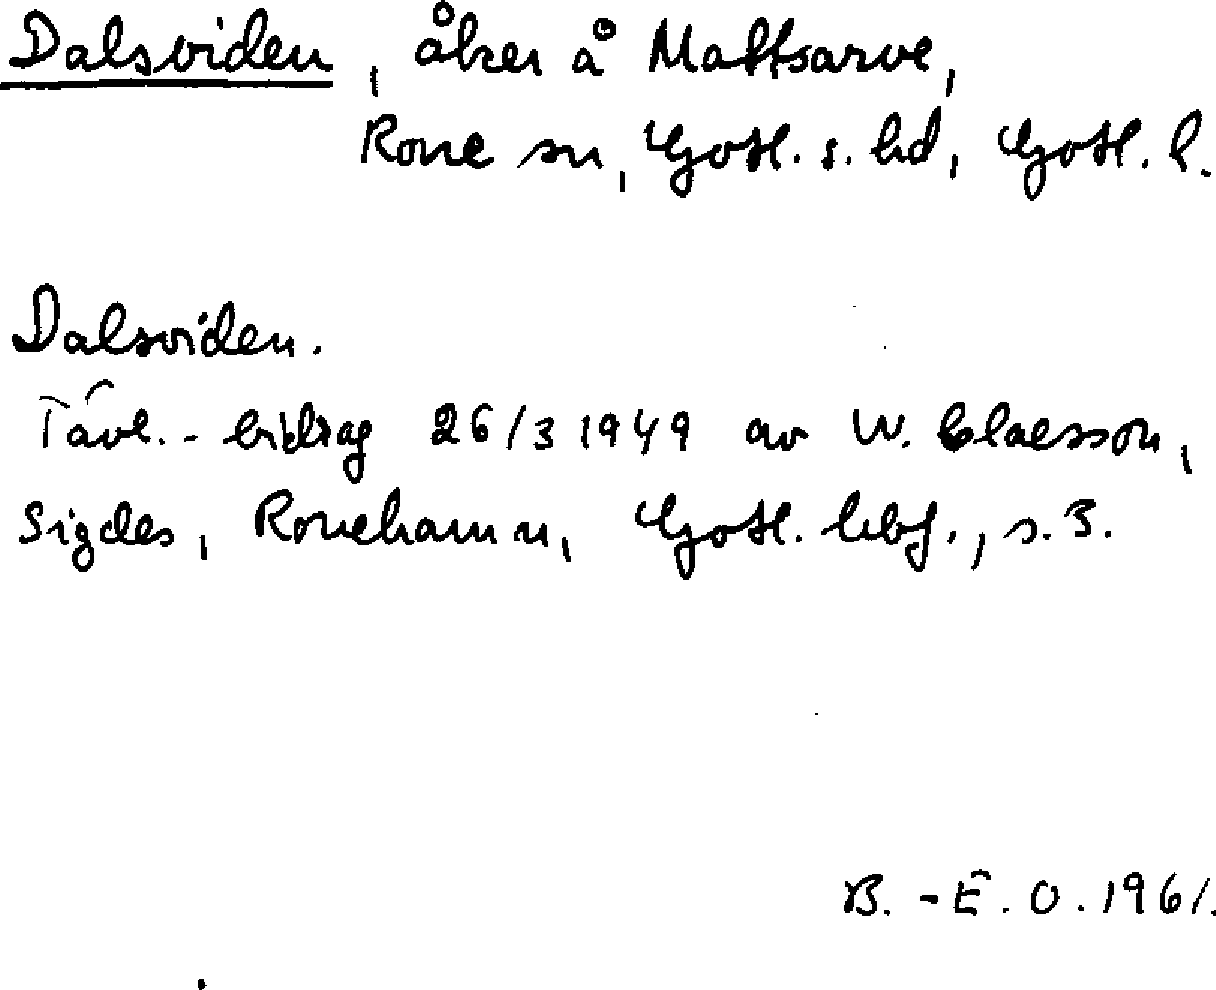 Dalsviden, åker å Mattsarve,
Rone sn, Gotl. s. hd, Gotl. l.
Dalsviden.
Tävl.-bidrag 26/3 1949 av W. Claesson,
Sigdes, Ronehamn, Gotl. hbf., s. 3.
B.-E. O. 1961.